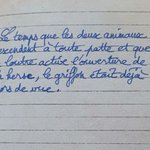 Le temps que les deux animaux
escendent à toute patte et que
loutre active l'ouverture de
herse, le griffon était déjà
ors de vue.